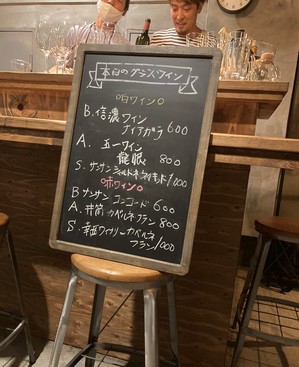 本日のグラスワイン
○白ワイン○
B. 信濃ワイン
ナイアガラ 600
A. 五一ワイン
龍眼 800
S. サンサンシャルドネ 1000
○赤ワイン○
B サンサン コンコード 600
A. 井筒 カベルネフラン 800
S. 幸西ワイナリーカベルネ
フラン 1000